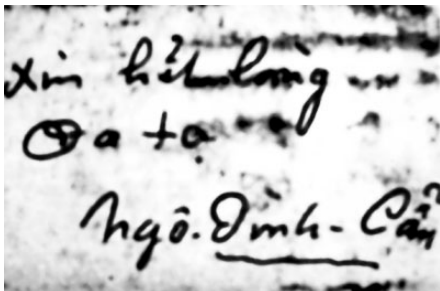 xin hết lòng
Đa tạ
Ngô-Đình-Cẩn